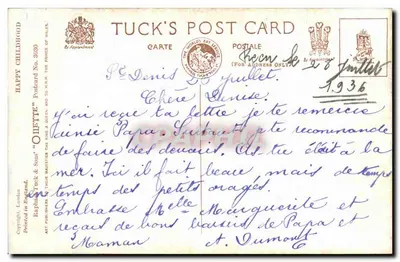 TUCK'S POST CARD
CARTE POSTALE
(FOR ADDRESS ONLY)
HAPPY CHILDHOOD
"ODETTE" Postcard No. 3620
Raphael Tuck & Sons'
Copyright London
Printed in England.
Reçu le 28 Juillet
1936
St Denis 25 juillet.
Chère Denise
J'ai reçu ta lettre je te remercie
ainsi Papa. Surtout je te recommande
de faire des devoirs. As-tu été à la
mer. Ici il fait beau, mais de temps
en temps des petits orages.
Embrasse Melle Marguerite et
reçois de bons baisers de Papa et
Maman
A. Dumont